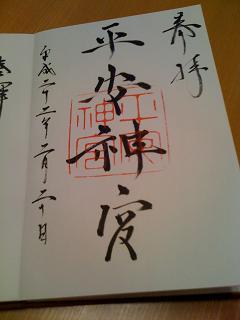 奉拝
平安神宮
平成二十二年二月二十日